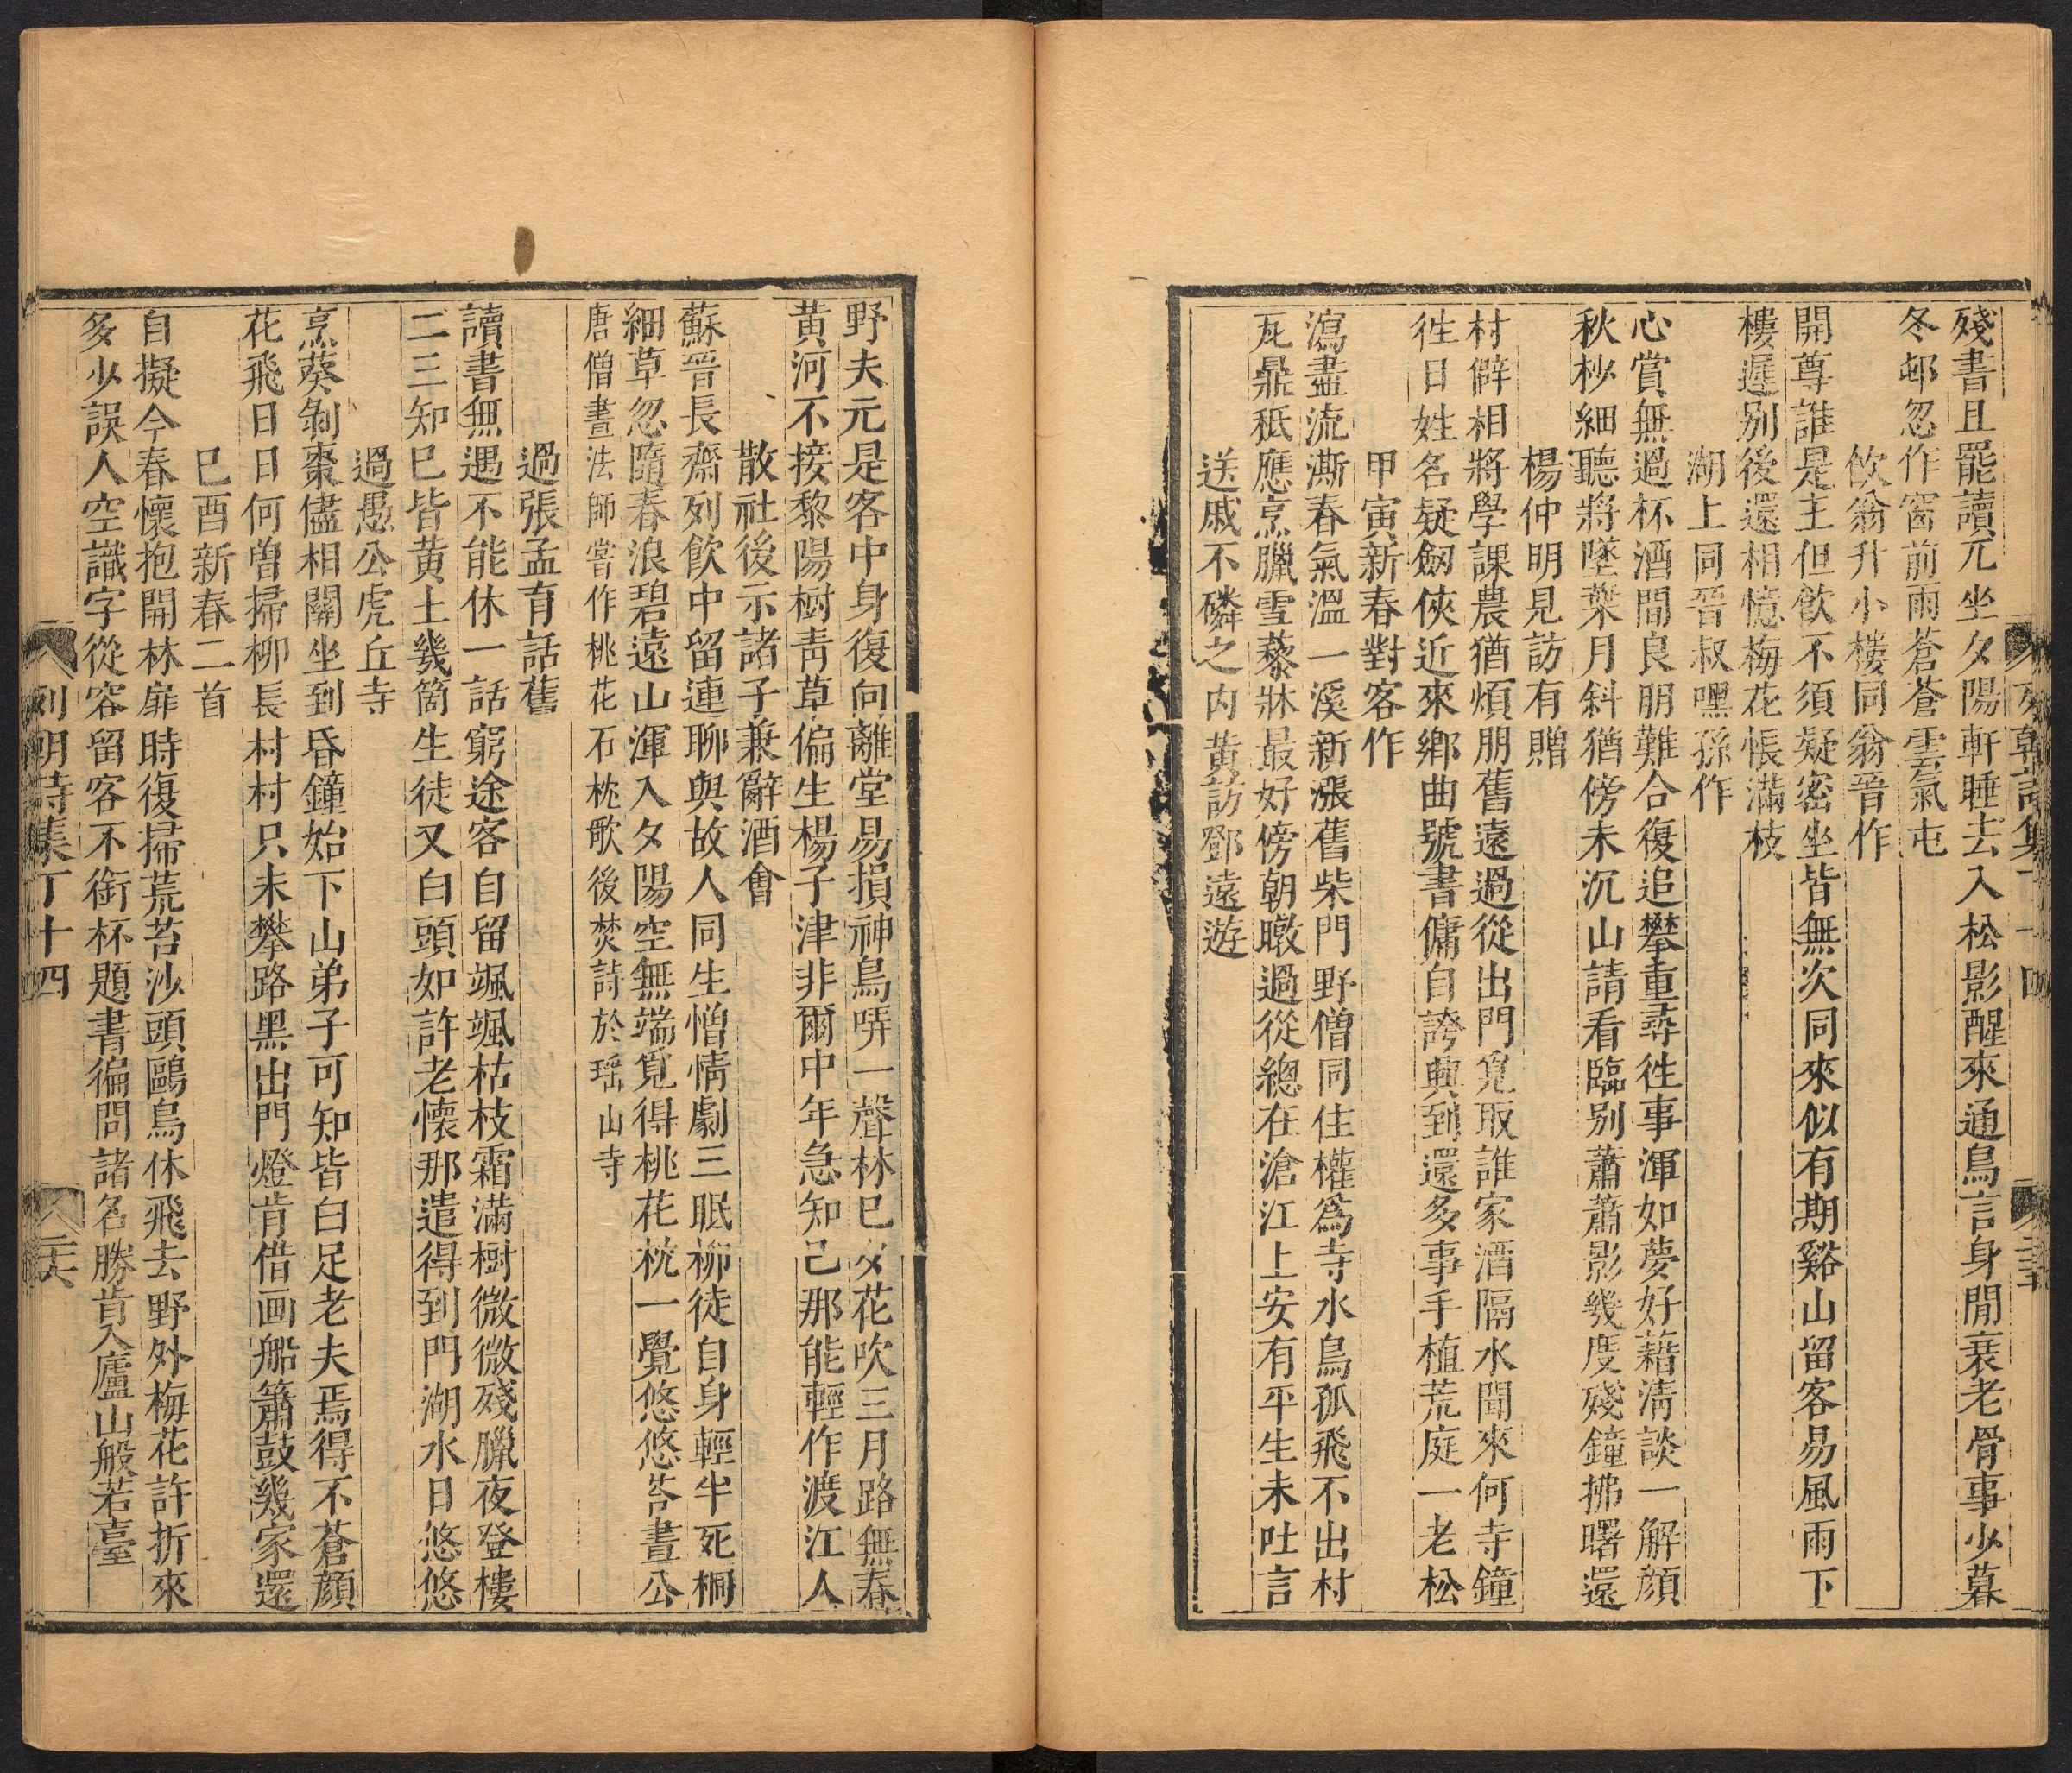 殘書且罷讀兀坐夕陽軒睡去入松影醒來通鳥言身閒衰老骨事少暮
冬邨忽作窗前雨蒼蒼雲氣屯
飲翁升小樓同翁晉作
開尊誰是主但飲不須疑密坐皆無次同來似有期谿山留客易風雨下
樓遲别後還相憶梅花悵滿枝
湖上同晉叔嘿孫作
心賞無過杯酒間良朋難合復追攀重尋徃事渾如夢好藉清談一解顔
秋杪細聽將墜葉月斜猶傍未沉山請看臨别蕭蕭影幾度殘鐘拂曙還
楊仲明見訪有贈
村僻相將學課農猶煩朋舊遠過從出門覓取誰家酒隔水聞來何寺鐘
徃日姓名疑劒俠近來鄉曲號書傭自誇興到還多事手植荒庭一老松
甲寅新春對客作
瀉盡流澌春氣溫一溪新漲舊柴門野僧同住權爲寺水鳥孤飛不出村
瓦鼎秪應烹臘雪藜牀最好傍朝暾過從總在滄江上安有平生未吐言
送戚不磷之内黄訪鄧遠遊
野夫元是客中身復向離堂易損神鳥哢一聲林已夕花吹三月路無春
黄河不接黎陽樹靑草偏生楊子津非爾中年急知己那能輕作渡江人
散社後示諸子兼辭酒會
蘇晉長齋列飲中留連聊與故人同生憎情劇三眠栁徒自身輕半死桐
細草忽隨春浪碧遠山渾入夕陽空無端覓得桃花枕一覺悠悠荅晝公
唐僧晝法師嘗作桃花石枕歌後焚詩於瑶山寺
過張孟育話舊
讀書無遇不能休一話窮途客自留颯颯枯枝霜滿樹微微殘臘夜登樓
二三知已皆黄土幾箇生徒又白頭如許老懷那遣得到門湖水日悠悠
過愚公虎丘寺
烹葵剝棗儘相關坐到昏鐘始下山弟子可知皆白足老夫焉得不蒼顔
花飛日日何曽掃柳長村村只未攀路黑出門燈肯借画船簫鼓幾家還
巳酉新春二首
自擬今春懷抱開林扉時復掃荒苔沙頭鷗鳥休飛去野外梅花許折來
多少誤人空識字從容留客不銜杯題書徧問諸名勝肯入廬山般若臺
列朝詩集丁十四